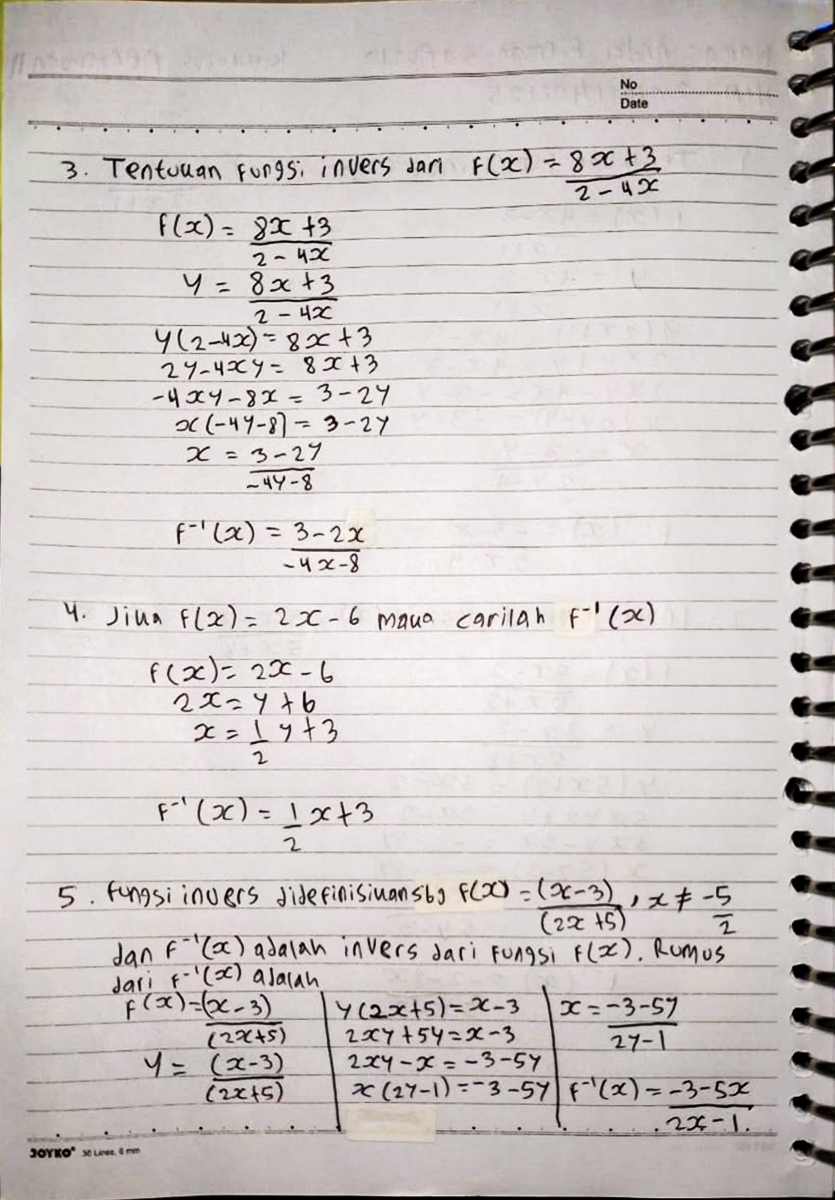 No
Date
3. Tentukan fungsi invers dari f(x) = 8x+3 / 2-4x
f(x) = 8x+3 / 2-4x
y = 8x+3 / 2-4x
y(2-4x) = 8x+3
2y-4xy = 8x+3
-4xy-8x = 3-2y
x(-4y-8) = 3-2y
x = 3-2y / -4y-8
f⁻¹(x) = 3-2x / -4x-8
4. Jika f(x) = 2x-6 maka carilah f⁻¹(x)
f(x) = 2x-6
2x = y+6
x = 1/2 y+3
f⁻¹(x) = 1/2 x+3
5. fungsi invers didefinisikan sbg f(x) = (x-3) / (2x+5), x ≠ -5/2
dan f⁻¹(x) adalah invers dari fungsi f(x). Rumus
dari f⁻¹(x) adalah
f(x) = (x-3) / (2x+5)
y = (x-3) / (2x+5)
y(2x+5) = x-3
2xy+5y = x-3
2xy-x = -3-5y
x(2y-1) = -3-5y
x = -3-5y / 2y-1
f⁻¹(x) = -3-5x / 2x-1.
JOYKO® 36 Lines, 6 mm